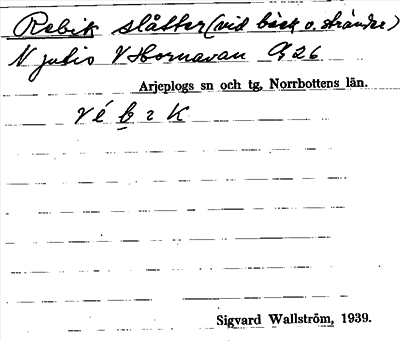 Rebik slåtter (vid bäck o. stränder)
N julio V Hornavan G 26
Arjeplogs sn och tg, Norrbottens län.
r é b ɿ k
Sigvard Wallström, 1939.